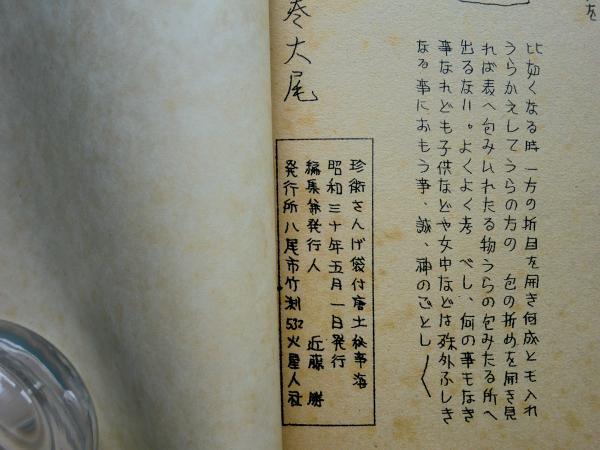 を
比如くなる時一方の折目を開き何成とも入れ
うらかえしてうらの方の 包の折めを開き見
れば表へ包み入れたる物うらの包みたる所へ
出るなり。よくよく考 べし、何の事もなき
事なれども子供などや女中などは殊外ふしき
なる事におもう事、誠、神のごとし
巻大尾
珍術さんげ袋付唐土秘事海
昭和三十年五月一日発行
編集兼発行人 近藤 勝
発行所八尾市竹渕532火星人社